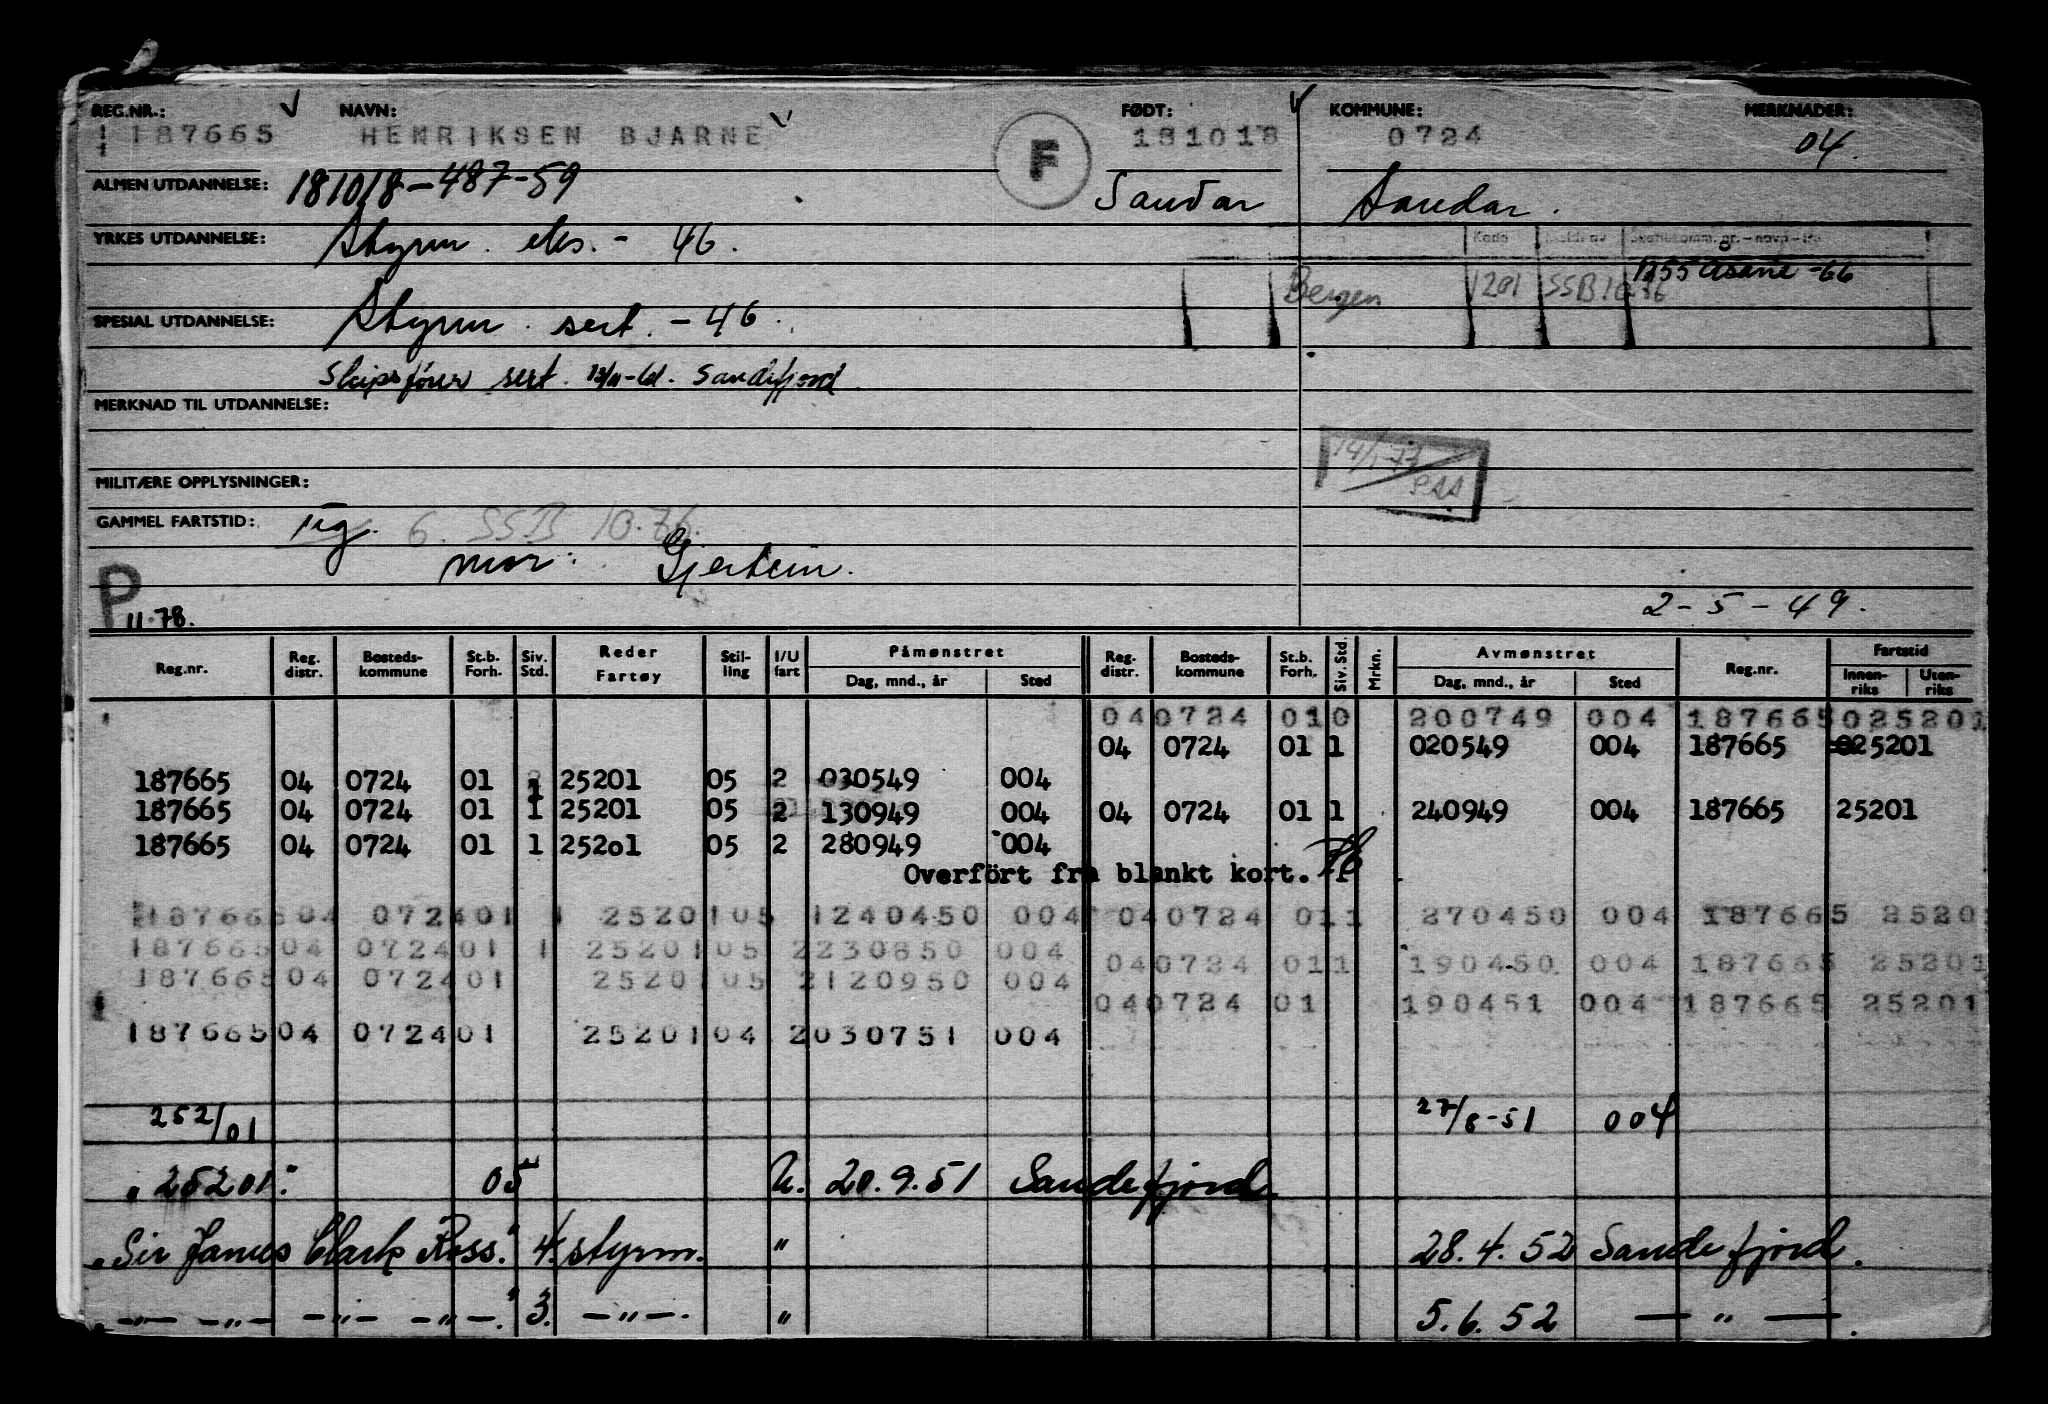 REG.NR.: NAVN: FØDT: KOMMUNE: MERKNADER:
187665 HENRIKSEN BJARNE F 181018 0724 04.
ALMEN UTDANNELSE: 181018-487-59 Sandar Sandar.
YRKES UTDANNELSE: Styrm. eks. - 46.
Kode Meldt av Skattekomm. nr. - navn - fra
1255 Åsane -66
Bergen 1201 SSB 10.76
SPESIAL UTDANNELSE: Styrm. sert. - 46.
Skipsfører sert. 13/11-61. Sandefjord.
MERKNAD TIL UTDANNELSE:
MILITÆRE OPPLYSNINGER:
GAMMEL FARTSTID: 6. SSB 10.76.
mor: Gjertsen.
P 11.78. 2-5-49.
Reg.nr. Reg. distr. Bosteds- kommune St.b. Forh. Siv. Std. Reder Fartøy Stil- ling I/U fart Påmønstret Dag, mnd., år Sted Reg. distr. Bosteds- kommune St.b. Forh. Siv. Std. Mrkn. Avmønstret Dag, mnd., år Sted Reg.nr. Fartstid Innen- riks Uten- riks
04 0724 01 0 200749 004 187665 025201
04 0724 01 1 020549 004 187665 025201
187665 04 0724 01 1 25201 05 2 030549 004
187665 04 0724 01 1 25201 05 2 130949 004 04 0724 01 1 240949 004 187665 25201
187665 04 0724 01 1 25201 05 2 280949 004
Overfört fra blankt kort.
187665 04 0724 01 1 25201 05 1 240450 004 04 0724 01 1 270450 004 187665 25201
187665 04 0724 01 1 25201 05 2 230850 004
04 0724 01 1 190450 004 187665 25201
187665 04 0724 01 25201 05 2 120950 004
04 0724 01 190451 004 187665 25201
187665 04 0724 01 25201 04 2 030751 004
252/01 27/8-51 004
"25201." 05 U. 20.9.51 Sandefjord
"Sir James Clark Ross." 4. styrm. " 28.4.52 Sandefjord.
" -"- -"- -"- -"-." 3. -"-. " 5.6.52 -"-.